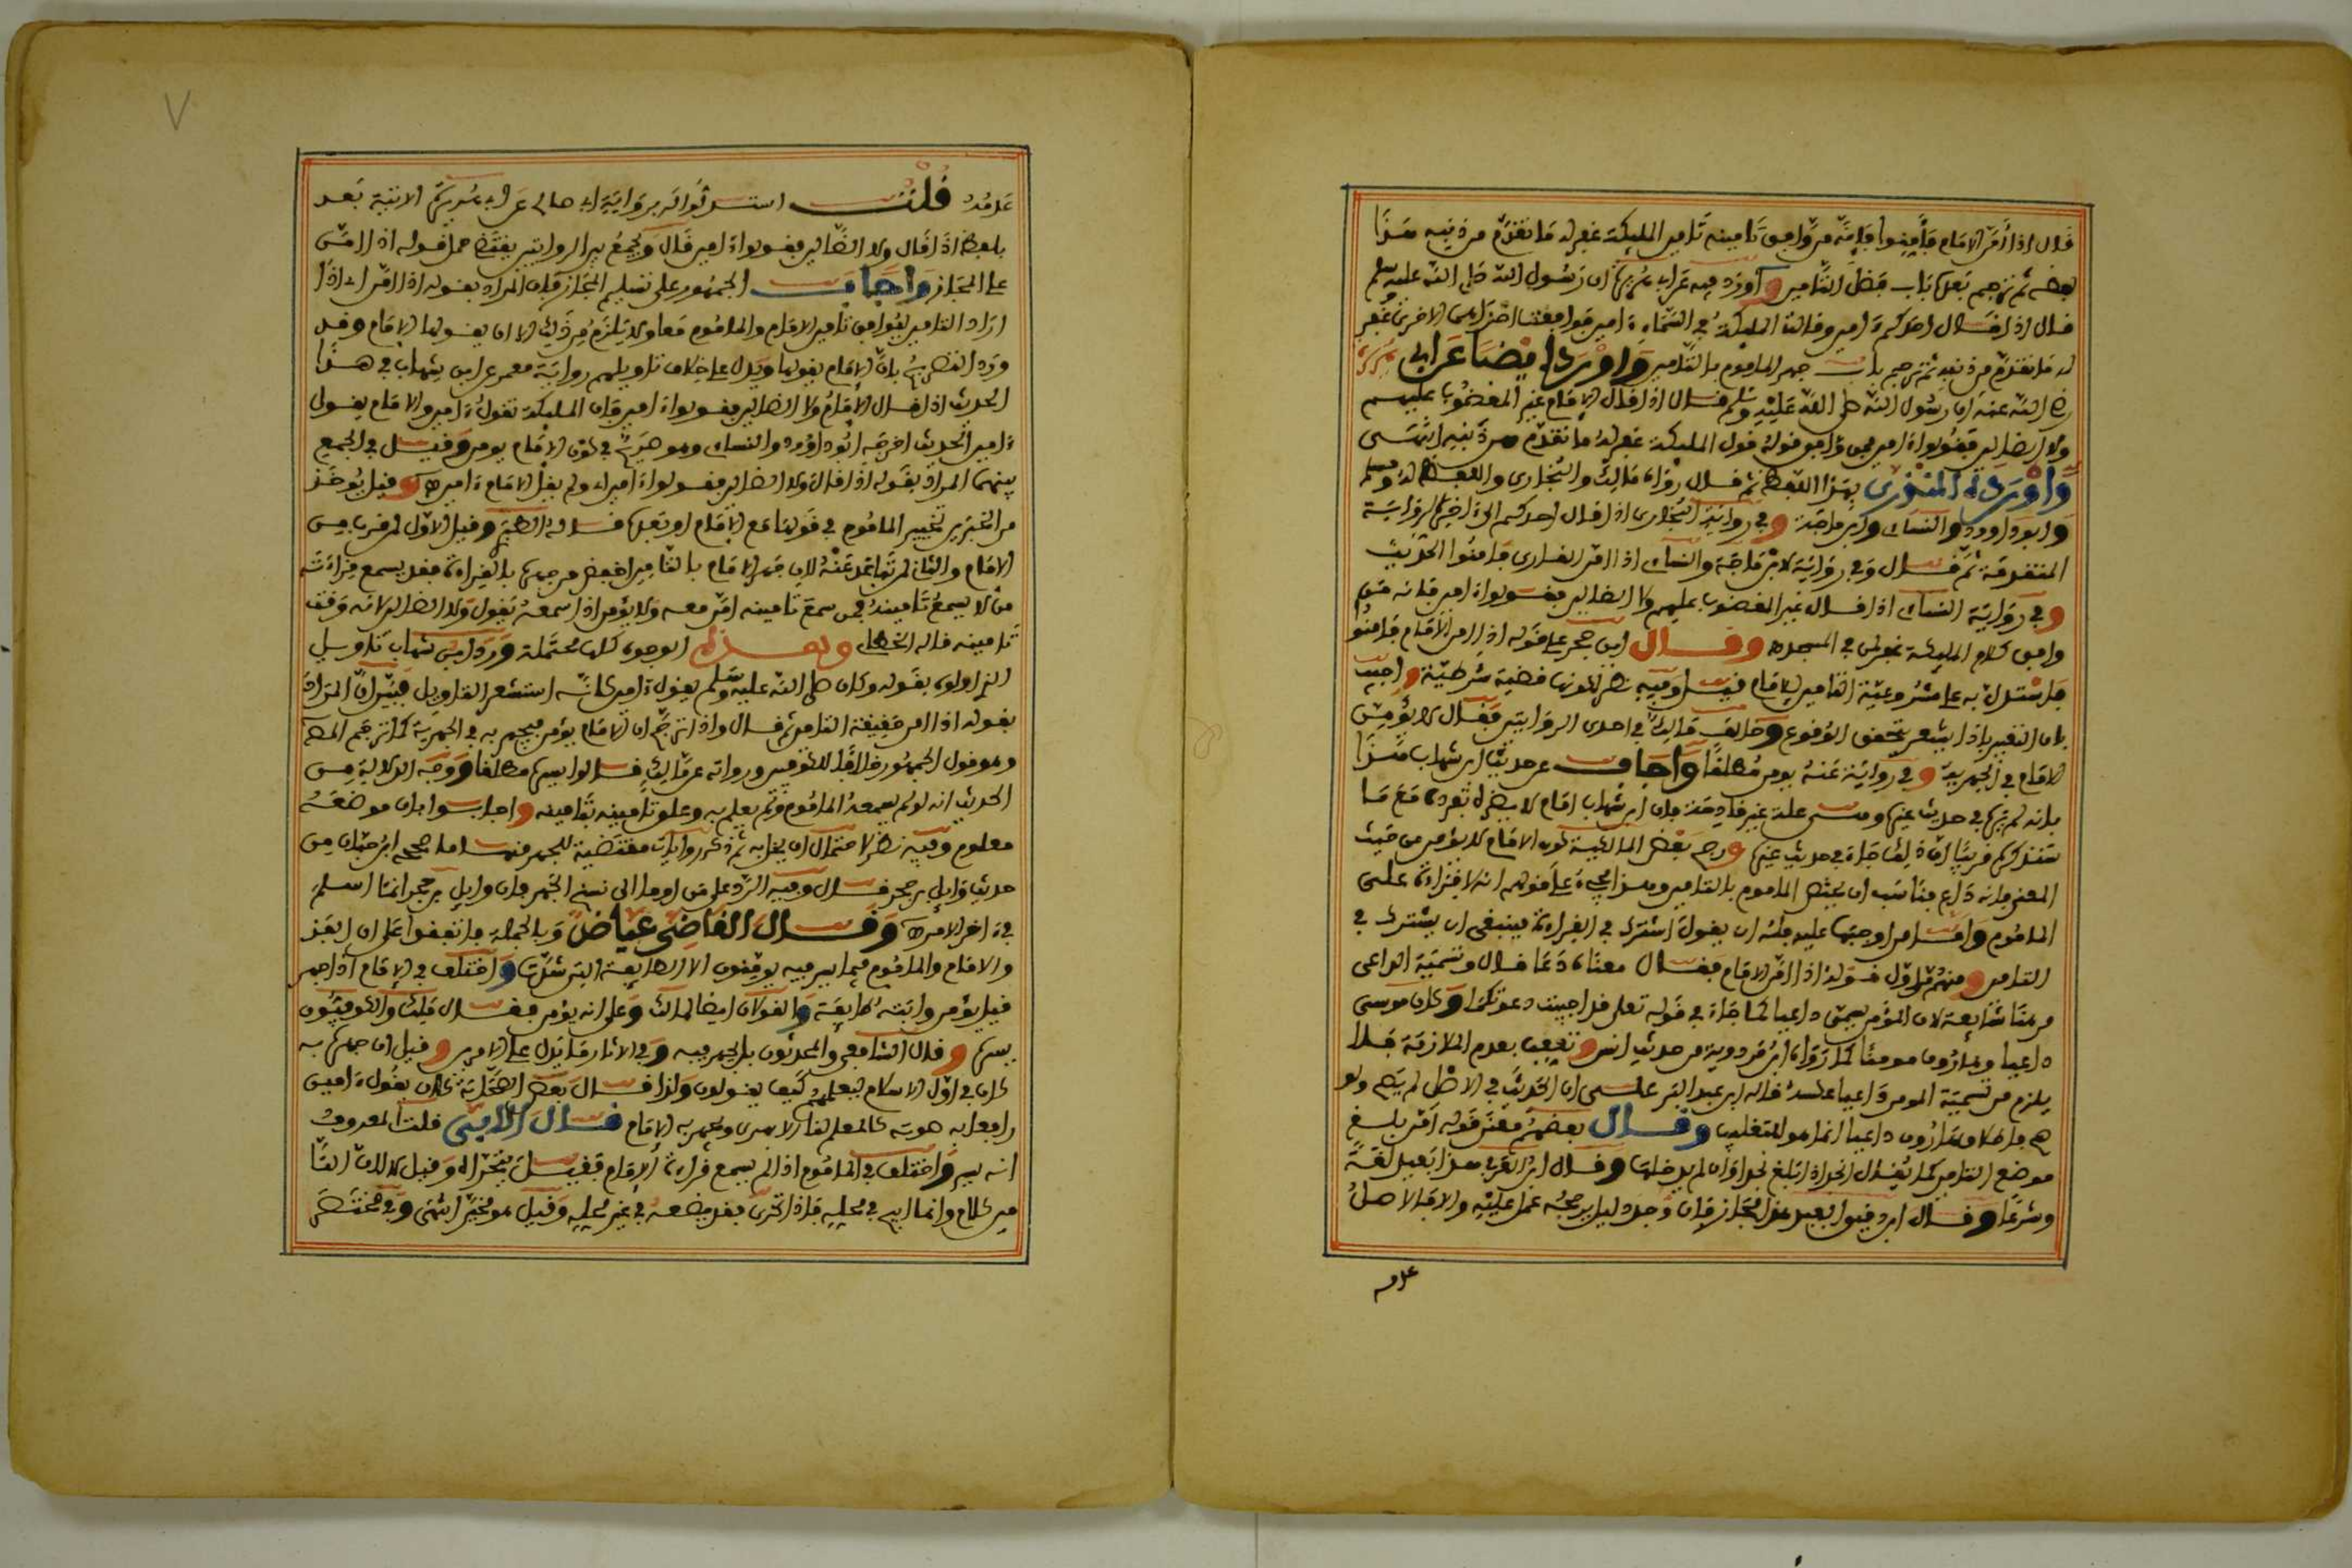 قال اذا أمن الإمام فأمنوا فإنه من وافق تامينه تامين المليكة غفر له ما تقدم من ذنبه هذا
لفظه ثم ترجم بعدها باب فضل التامين وأورد فيه عن ابي هريرة ان رسول الله صلى الله عليه وسلم
قال اذا قال احدكم ءامين وقالت المليكة في السماء ءامين فوافقت احداهما الاخرى غفر
له ما تقدم من ذنبه ثم ترجم باب جهر الماموم بالتامين واورد ايضا عن ابي هريرة
رضي الله عنه ان رسول الله صلى الله عليه وسلم قال اذا قال الإمام غير المغضوب عليهم
ولا الضالين فقولوا ءامين فمن وافق قوله قول المليكة غفر له ما تقدم من ذنبه انتهى
وأورده المنذري بهذا اللفظ ثم قال رواه مالك والبخاري واللفظ له ومسلم
وابو داوود والنساي وابن ماجة وفي رواية البخاري اذا قال احدكم الى ءاخر الرواية
المتقدمة ثم قال وفي رواية لابن ماجة والنساي اذا أمن القاري فامنوا الحديث
وفي رواية النساي اذا قال غير المغضوب عليهم ولا الضالين فقولوا ءامين فانه من
وافق كلام المليكة غفر لمن في المسجد وقال ابن حجر على قوله اذا امن الإمام فامنوا
فاستدل به على مشروعية التامين للإمام قيل وفيه نظر لكونها قضية شرطية واجيب
بان التعبير باذا يشعر بتحقق الوقوع وخالف مالك في احدى الروايتين فقال لا يؤمن
الإمام في الجهرية وفي رواية عنه لا يومن مطلقا وأجاب عن حديث ابن شهاب هذا
بانه لم يرها في حديث غيره وهي علة غير قادحة فان ابن شهاب امام لا يضره تفرده مع ما
سنذكره قريبا ان ذلك جاء في حديث غيره ورجح بعض المالكية كون الإمام لا يؤمن من حيث
المعنى بانه داع فناسب ان يختص الماموم بالتامين وهذا يجيء على قولهم انه لا قراءة على
الماموم وأما من اوجبها عليه فله ان يقول اشترك في القراءة فينبغي ان يشترك في
التامين ومنهم من اول قوله اذا امن الإمام فقال معناه دعا قال وتسمية الداعي
مؤمنا شايعة لان المؤمن يسمى داعيا كما جاء في قوله تعلى قد اجيبت دعوتكما وكان موسى
داعيا وهارون مومنا كما رواه ابن مردويه من حديث انس وتعقب بعدم الملازمة فلا
يلزم من تسمية المومن داعيا عكسه قاله ابن عبد البر على ان الحديث في الاصل لم يصح ولو
صح فاطلاق هارون داعيا انما هو للتغليب وقال بعضهم معنى قوله امن بلغ
موضع التامين كما يقال انجد اذا بلغ نجدا وان لم يدخلها وقال ابن العربي هذا بعيد لغة
وشرعا وقال ابن دقيق العيد هذا مجاز فان وجد دليل يرجحه عمل عليه والا فالاصل
عدمه
عدمه قلت استدلوا له برواية ابي صالح عن ابي هريرة الاتية بعد
بلفظ اذا قال ولا الضالين فقولوا ءامين قال والجمع بين الروايتين يقتضي حمل قوله اذا امن
على المجاز وأجاب الجمهور على تسليم المجاز بان المراد بقوله اذا امن اي اذا
اراد التامين ليتوافق تامين الإمام والماموم معا ولا يلزم من ذلك ان لا يقولها الإمام وقد
ورد التصريح بان الإمام يقولها ويدل على خلاف تاويلهم رواية معمر عن ابن شهاب في هذا
الحديث اذا قال الإمام ولا الضالين فقولوا ءامين فان المليكة تقول ءامين والإمام يقول
ءامين الحديث اخرجه ابو داوود والنساي وهو صريح في كون الإمام يومن وقيل في الجمع
بينهما المراد بقوله اذا قال ولا الضالين فقولوا ءامين اي ولم يقل الإمام ءامين وقيل يوخذ
من الخبرين تخيير الماموم في قولها مع الإمام او بعده قاله الطبري وقيل الاول لمن قرب من
الإمام والثاني لمن تباعد عنه لان جهر الإمام بالتامين اخفض من جهره بالقراءة فقد يسمع قراءته
من لا يسمع تامينه فمن سمع تامينه امن معه والا يؤمن اذا سمعه يقول ولا الضالين لانه وقت
تامينه قاله الخطابي وهذه الوجوه كلها محتملة ورد ابن شهاب تاويل
بقوله وكان صلى الله عليه وسلم يقول ءامين كانه استشعر التاويل فبين ان المراد
بقوله اذا امن حقيقة التامين ثم قال واذا ترجح ان الإمام يؤمن فيجهر به في الجهرية كما ترجم به المص
وهو قول الجمهور خلافا للكوفيين ورواية عن مالك فقالوا يسر مطلقا ووجه الدلالة من
الحديث انه لو لم يسمعه الماموم لم يعلم به وعلق تامينه بتامينه واجابوا بان موضعه
معلوم وفيه نظر لاحتمال ان يخل به ثم ذكر روايات مقتضية للجهر منها ما صححه ابن حبان من
حديث وايل بن حجر قال وفيه الرد على من اوما الى نسخ الجهر فان وايل بن حجر انما اسلم
في ءاخر الامر وقال القاضي عياض وبالجملة فاتفقوا على ان الفذ
والإمام والماموم فيما يسر فيه يومنون الا طايفة شذت واختلف في الإمام اذا جهر
فقيل يؤمن وابته طايفة والقولان ايضا لمالك وعلى انه يؤمن فقال مالك والكوفيون
يسر وقال الشافعي والمحدثون بل يجهر فيه وفي الاثار ما يدل على الامرين وقيل ان جهره به
كان في اول الاسلام ليعلمهم كيف يقولون ولذا قال بعض الصحابة كان يقول ءامين
رافعا به صوته كالمعلم لنا الا يسر ويجهر به الإمام قال الأبي قلت المعروف
انه يسر واختلف في الماموم اذا لم يسمع قراءة الإمام فقيل يتحرى له وقيل لا لان التا
مين كلام وانما ابيح في محله فاذا تحرى فقد يضعه في غير محله وقيل هو مخير انتهى وفي مختصر